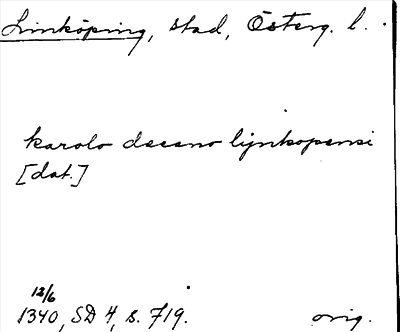 Linköping, stad, Österg. l.
karolo decano lijnkopensi
[dat.]
12/6
1340, SD 4, s. 719. orig.